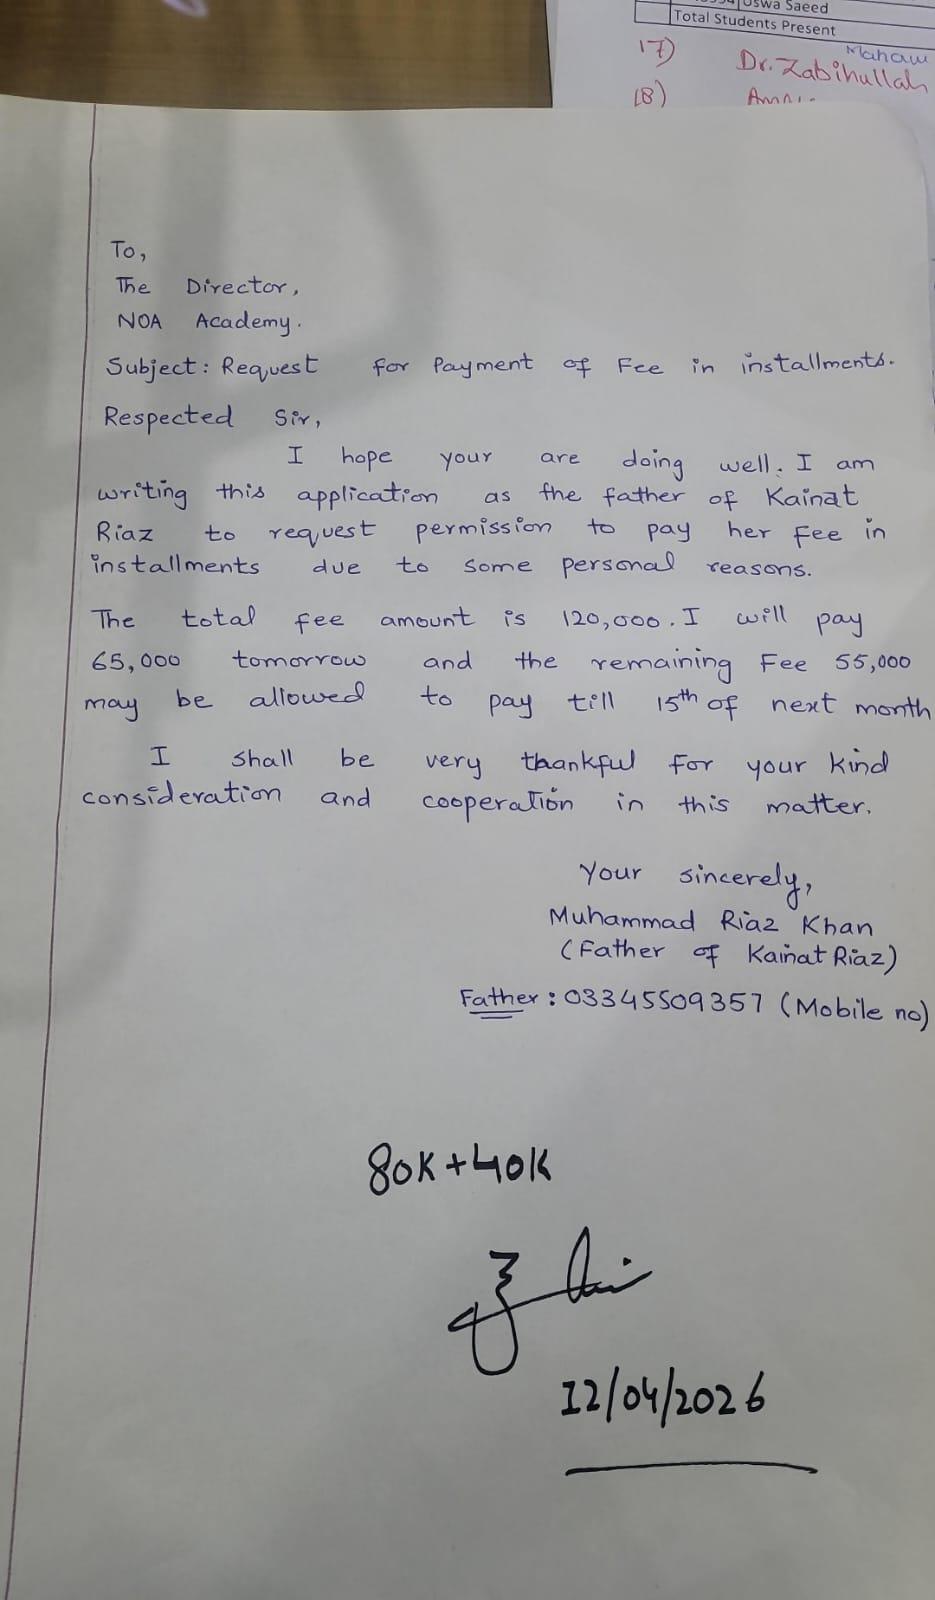 Uswa Saeed
Total Students Present
Mahaw
17) Dr. Zabihullah
18)
To,
The Director,
NOA Academy.
Subject: Request for Payment of Fee in installments.
Respected Sir,
I hope your are doing well. I am
writing this application as the father of Kainat
Riaz to request permission to pay her Fee in
installments due to some personal reasons.
The total fee amount is 120,000. I will pay
65,000 tomorrow and the remaining Fee 55,000
may be allowed to pay till 15th of next month
I shall be very thankful for your kind
consideration and cooperation in this matter.
Your sincerely,
Muhammad Riaz Khan
(Father of Kainat Riaz)
Father: 03345509357 (Mobile no)
80K+40K
12/04/2026